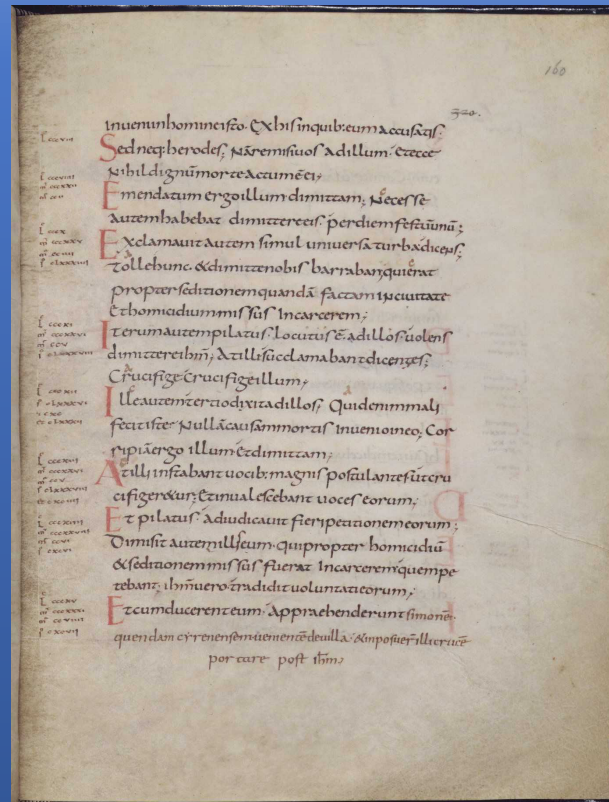 160
320.
inuenio in homine isto. Ex his in quib: eum accusatis.
Sed neq: herodes; Nā remisi uos ad illum. Et ecce
Nihil dignum morte actum ē ei;
Emendatum ergo illum dimittam; Necesse
autem habebat dimittere eis. per diem festū unū;
Exclamauit autem simul uniuersa turba dicens;
Tolle hunc. & dimitte nobis barraban; qui erat
propter seditionem quandā factam in ciuitate
Et homicidium missus In carcerem;
Iterum autem pilatus. locutus ē ad illos. uolens
dimittere ihm̄; At illi succlamabant dicentes;
Crucifige Crucifige illum;
Ille autem tertio dixit ad illos; Quid enim mali
fecit iste. Nullā causam mortis inuenio in eo; Cor
ripiā ergo illum Et dimittam;
At illi instabant uocib: magnis postulantes ut cru
cifiger&ur; Et inualescebant uoces eorum;
Et pilatus. adiudicauit fieri petitionem eorum;
Dimisit autem illis eum. qui propter homicidiū
& seditionem missus fuerat In carcerem quem pe
tebant; ihm̄ uero tradidit uoluntati eorum;
Et cum ducerent eum. Appraehenderunt simonem
quendam cyrenensem uenientē de uilla. & imposuer̄ illi crucē
portare post ihm̄;